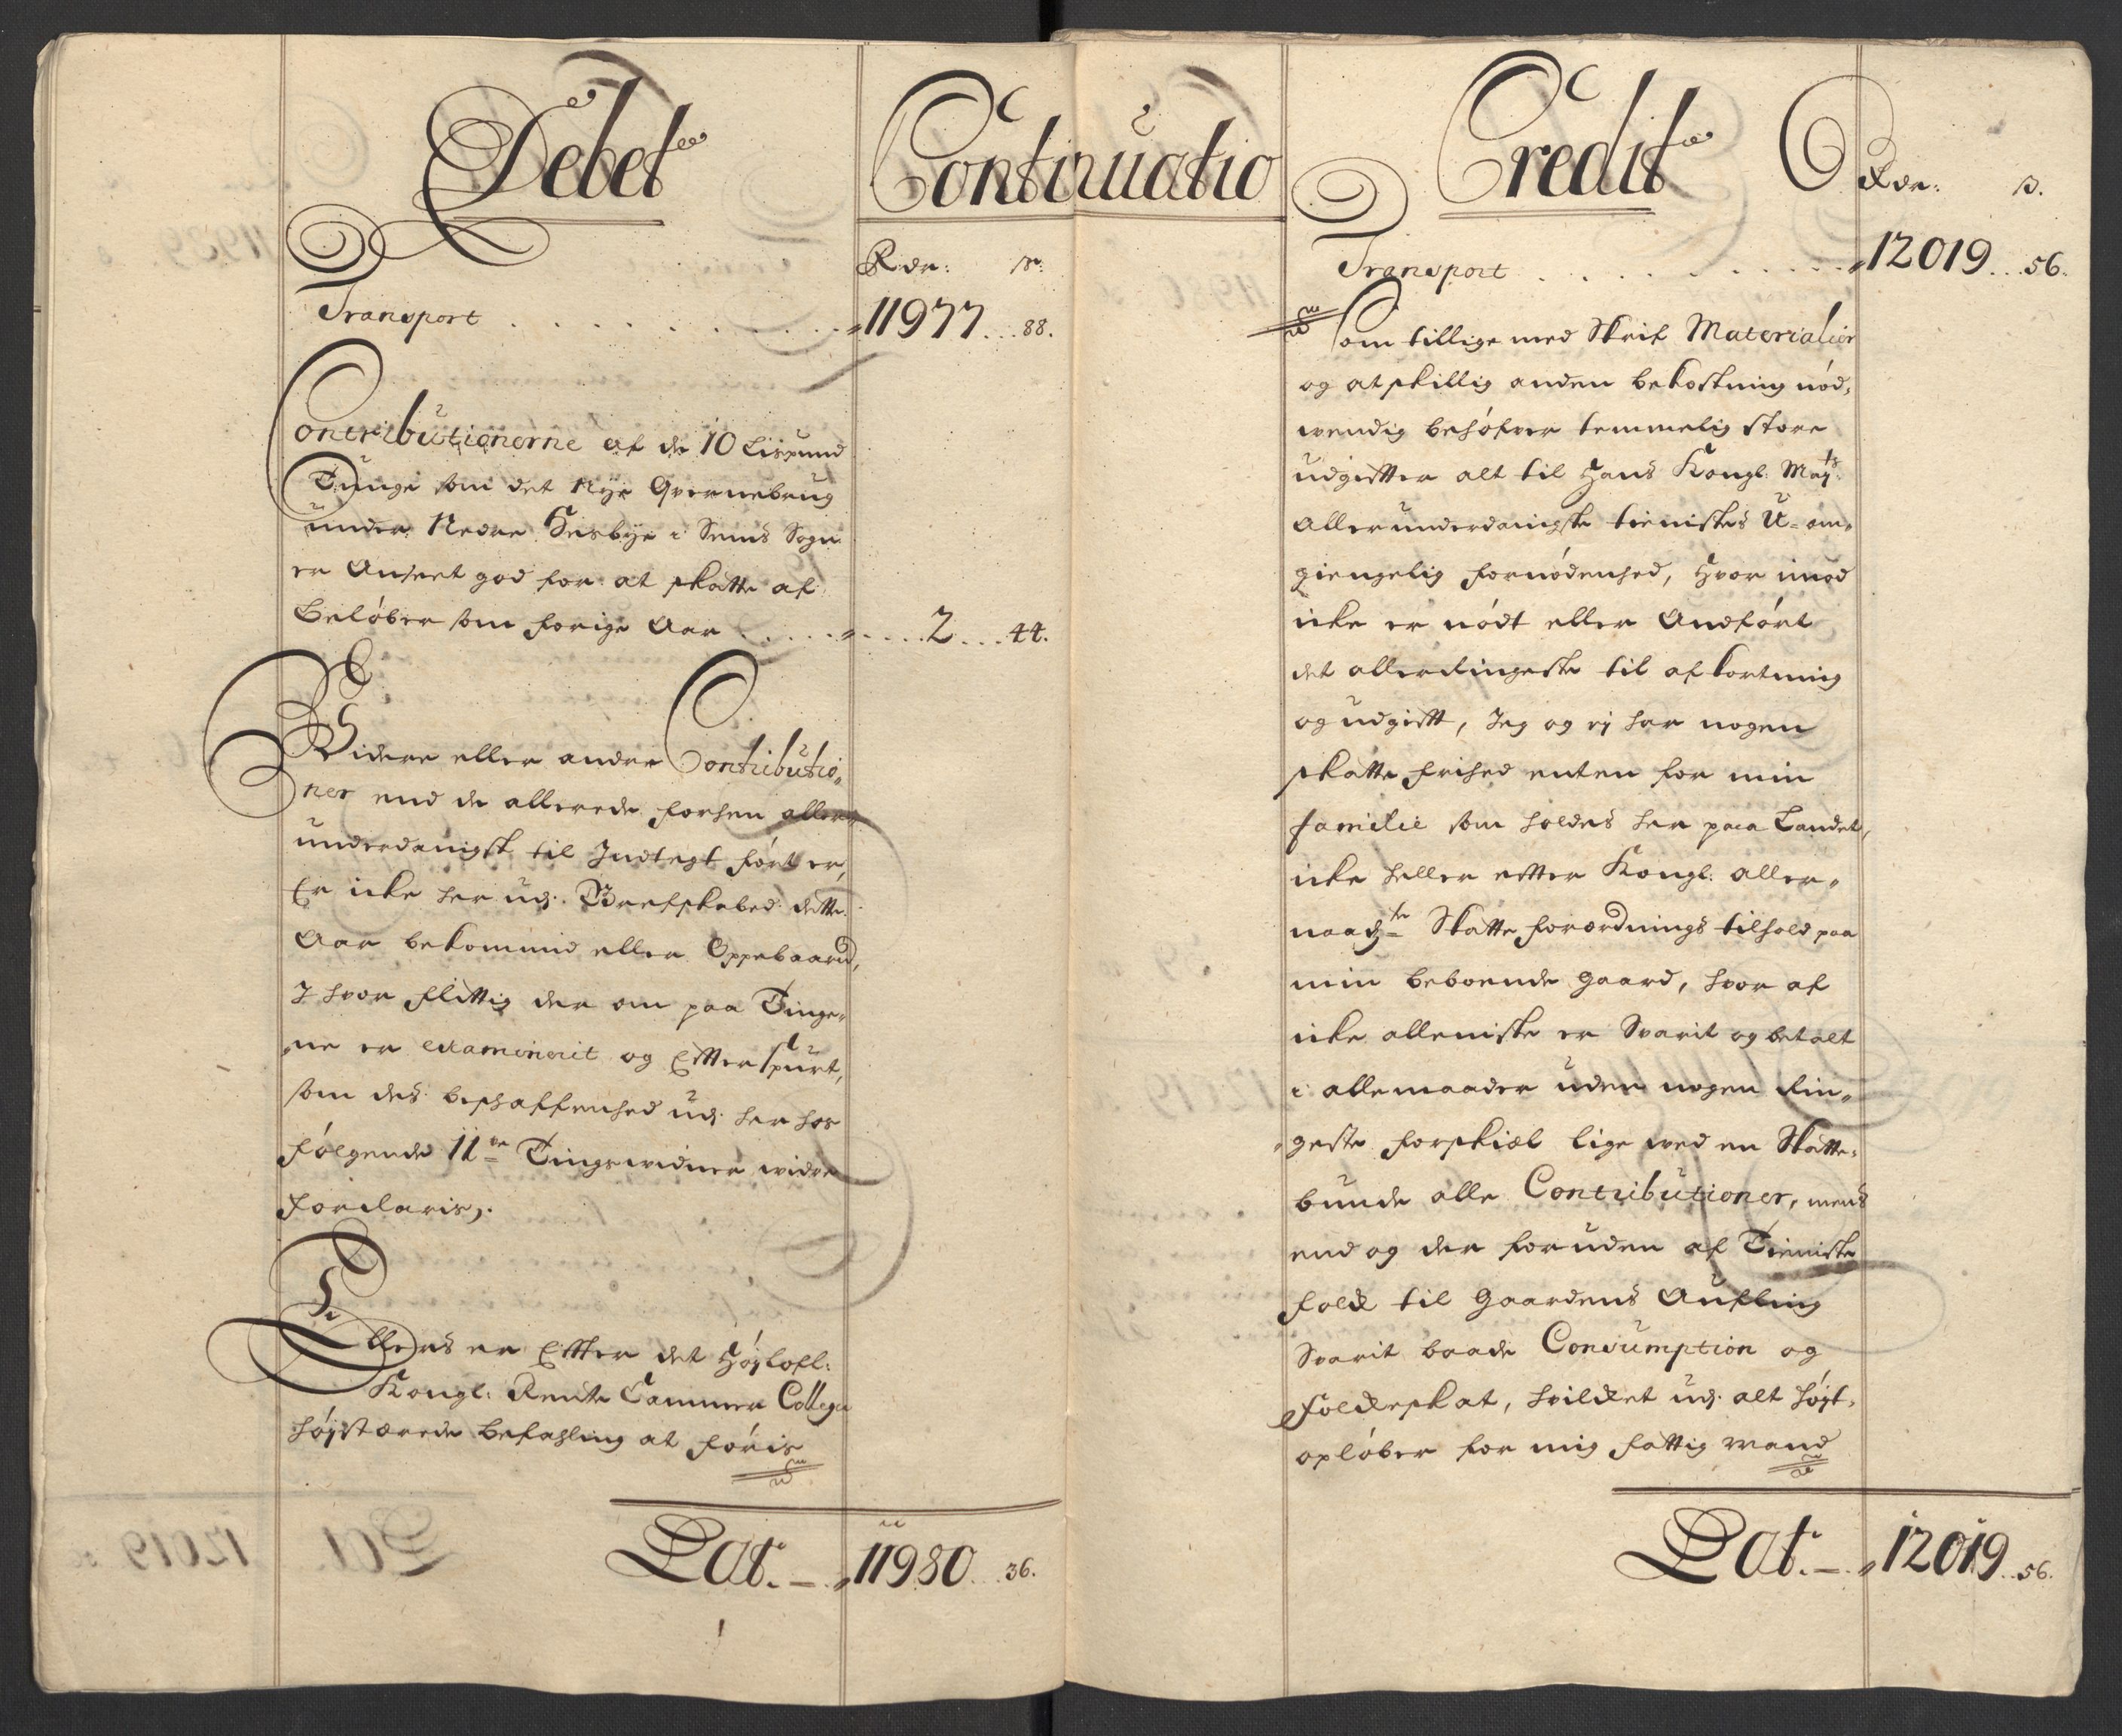 Debet
Continuatio
Rdr: ß:
Transport . . . . . . . . . . 11977...88.
Contributionerne af de 10 Lispund
Tunge som det Nye Qvernebrug
under Nedre Hesbye i Sems Sogn
er Anseet god for at skatte af
Beløber som forige Aar . . . . . . . . . 2...44.
Videre eller andre Contributio„
ner end de allerede forhen aller„
underdanigst til Indtegt ført er,
Er icke her udj. Grefskabed dette
Aar bekommid eller Oppebaared,
I hvor flittig der om paa Tinge„
ne er examinerit og Efterspurt,
som des beschaffenhed udj. her hos
følgende 11de Tingswidner widre
forclaris;
Ellers er Efter det Højlofl:
Kongl: Rente Cammer Collegii
højstærede befahling at føris
Lat. — 11980...36.
Credit
Rdr: ß.
Transport . . . . . . . . . . 12019...56.
Som tillige med Skrif Materialier
og atskillig anden bekostning nød„
wendig behøfver temmelig store
udgifter alt til Hans Kongl: Mayts
Allerunderdanigste tienistes U-om„
giengelig fornødenhed, Hvor imod
icke er nødt eller Andført
det allerringeste til afkortning
og udgift, Jeg og ej har nogen
skatte frihed enten for min
familie som holdes her paa Landet,
icke heller efter Kongl: aller„
naadste Skatte forordnings tilhold paa
min beboende gaard, hvor af
icke alleniste er Svarit og betalt
i allemaader uden nogen Rin„
„geste forskiæl lige wed en Skatte„
bunde alle Contributioner, mens
end og der foruden af Tieniste
folck til Gaardens Aufling
Svarit baade Consumption og
Folckeskat, hvilcket udj. alt højt„
opløber for mig fattig Mand
Lat. — 12019..56.